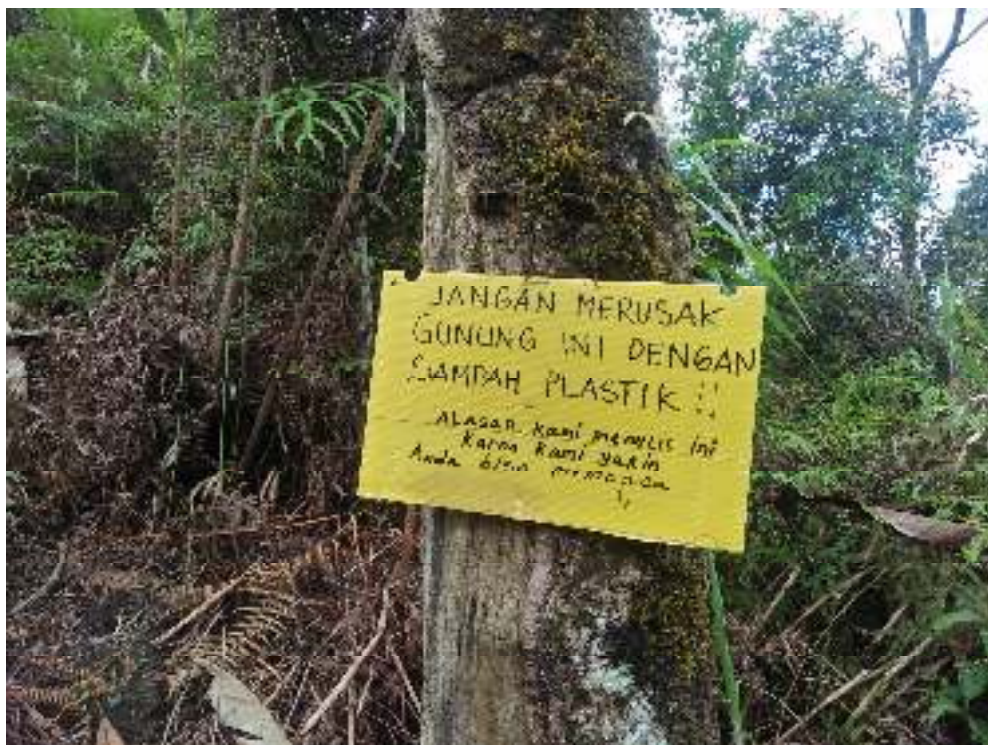 JANGAN MERUSAK
GUNUNG INI DENGAN
SAMPAH PLASTIK !!
ALASAN Kami menulis ini
Karna Kami yakin
Anda bisa membaca